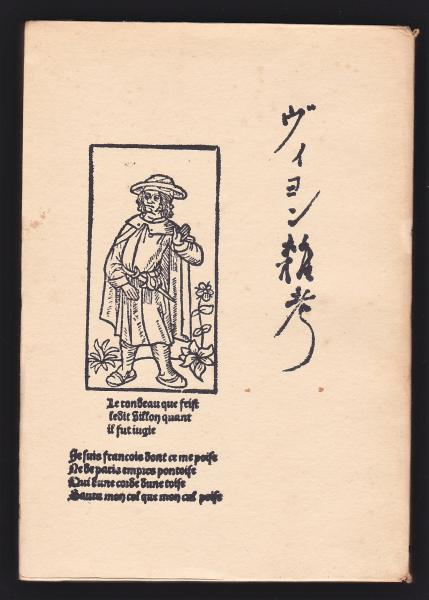 ヴィヨン雑考
Le rondeau que feist
ledit Villon quant
il fut iugie
Je suis francois dont ce me poise
Ne de paris empres pontoise
Qui dune corde dune toise
Saura mon col que mon cul poise